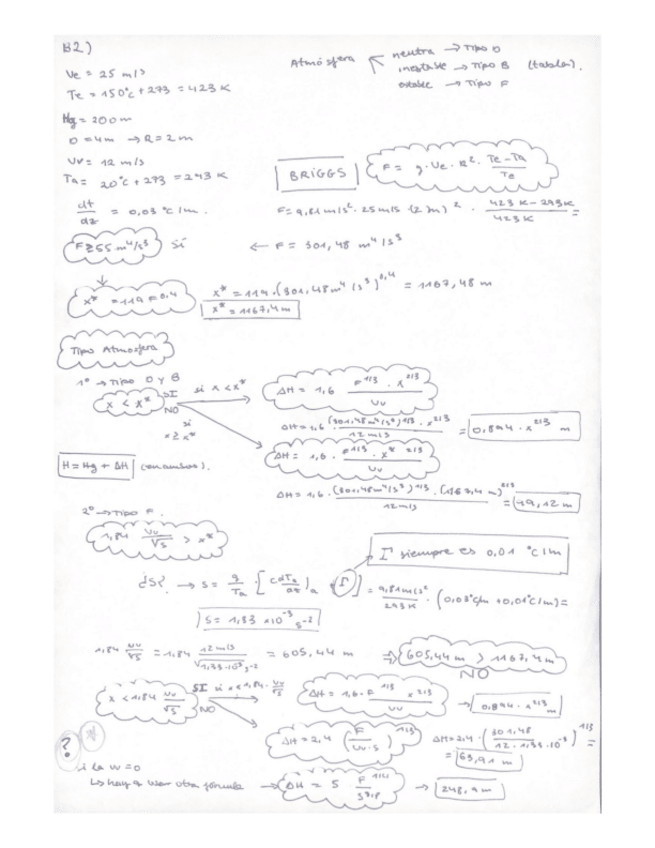 B2)
Atmósfera neutra → Tipo D
inestable → Tipo B (tablas).
estable → Tipo F
Ve = 25 m/s
Te = 150°C + 273 = 423 K
Hg = 200 m
D = 4m → R = 2 m
Uv = 12 m/s
Ta = 20°C + 273 = 293 K
BRIGGS
F = g · Ve · R² · (Te - Ta)/Te
dt/dz = 0,03 °C/m.
F = 9,81 m/s² · 25 m/s · (2 m)² · (423 K - 293 K)/423 K =
F ≥ 55 m⁴/s³ Sí
← F = 301,48 m⁴/s³
x* = 119 F^0,4
x* = 119 · (301,48 m⁴/s³)^0,4 = 1167,48 m
x* = 1167,4 m
Tipo Atmósfera
1º → Tipo D y B
x < x* SI si x < x*
ΔH = 1,6 F^1/3 · x^2/3 / Uv
NO
si x ≥ x*
ΔH = 1,6 · (301,48 m⁴/s³)^1/3 · x^2/3 / 12 m/s = 0,894 · x^2/3 m
ΔH = 1,6 · F^1/3 · x*^2/3 / Uv
H = Hg + ΔH (en ambos).
ΔH = 1,6 · (301,48 m⁴/s³)^1/3 · (1167,4 m)^2/3 / 12 m/s = 99,12 m
2º → Tipo F.
1,84 Uv/√S > x*
Γ siempre es 0,01 °C/m
¿S? → S = g/Ta · [(dTa/dz)a + Γ] = 9,81 m/s²/293 K · (0,03°C/m + 0,01°C/m) =
S = 1,33 × 10⁻³ s⁻²
1,84 Uv/√S = 1,84 12 m/s / √1,33·10⁻³ s⁻² = 605,44 m ⇒ 605,44 m > 1167,4 m
NO
x < 1,84 Uv/√S SI si x < 1,84 · Uv/√S
ΔH = 1,6 · F^1/3 x^2/3 / Uv → 0,894 · x^2/3 m
NO
ΔH = 2,4 (F / Uv · S)^1/3
ΔH = 2,4 · (301,48 / 12 · 1,33 · 10⁻³)^1/3 =
= 63,91 m
?
si la uv = 0
↳ hay q usar otra fórmula → ΔH = 5 F^1/4 / S^3/8 → 248,9 m